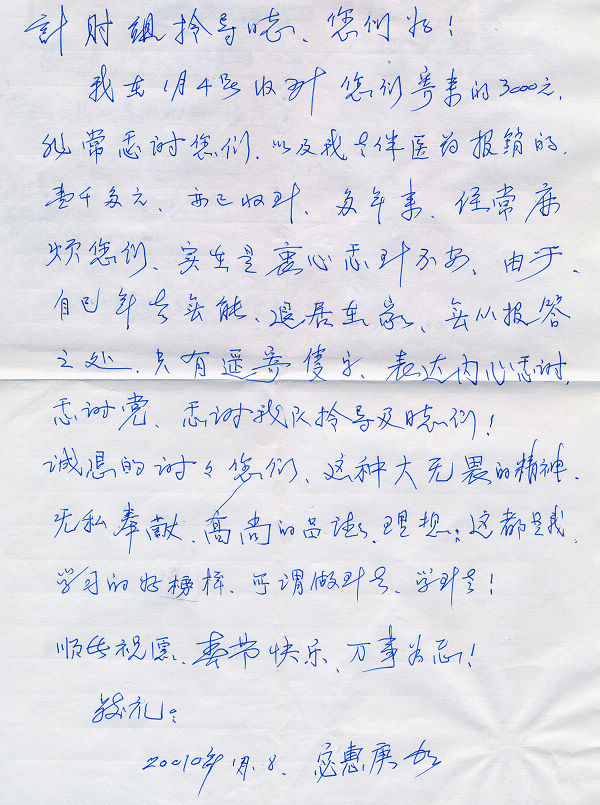 計时组领导同志、您们好！
我在1月4号收到您们寄来的3000元、
非常感谢您们、以及我老伴医药报销的、
壹千多元、亦已收到、多年来、经常麻
烦您们、实在是衷心感到不安、由于、
自己年老无能、退居在家、无从报答
之处、只有遥寄笺字、表达内心感谢、
感谢党、感谢我队领导及同志们！
诚恳的谢々您们、这种大无畏的精神、
无私奉献、高尚的品德、理想；这都是我、
学习的好榜样、可谓做到老、学到老！
顺此祝愿、春节快乐、万事如意！
致礼：
20010年1月.8、惠庚